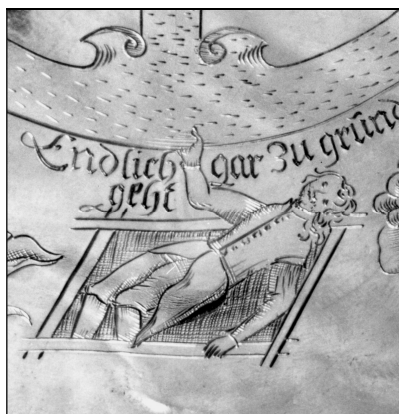 Endlich gar zu grûnd
geht